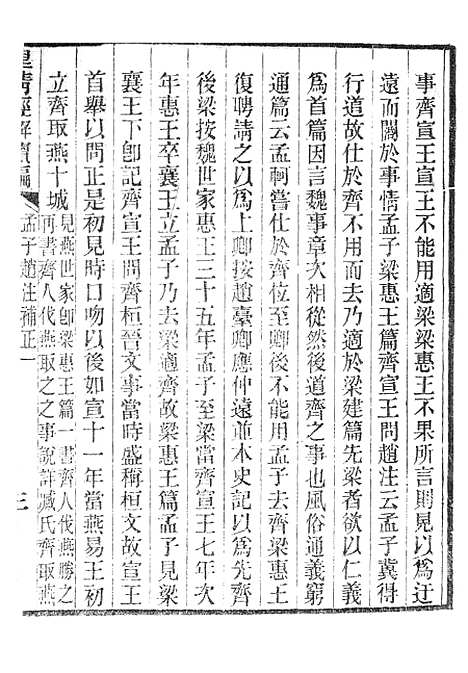 事齊宣王宣王不能用適梁梁惠王不果所言則見以為迂
遠而闊於事情孟子梁惠王篇齊宣王問趙注云孟子冀得
行道故仕於齊不用而去乃適於梁建篇先梁者欲以仁義
為首篇因言魏事章次相從然後道齊之事也風俗通義窮
通篇云孟軻嘗仕於齊位至卿後不能用孟子去齊梁惠王
復聘請之以為上卿按趙臺卿應仲遠並本史記以為先齊
後梁按魏世家惠王三十五年孟子至梁當齊宣王七年次
年惠王卒襄王立孟子乃去梁適齊故梁惠王篇孟子見梁
襄王下卽記齊宣王問齊桓晉文事當時盛稱桓文故宣王
首舉以問正是初見時口吻以後如宣十一年當燕易王初
立齊取燕十城見燕世家卽梁惠王篇一書齊人伐燕勝之
再書齊人伐燕取之之事說詳臧氏齊取燕
皇清經解續編
孟子趙注補正一
三